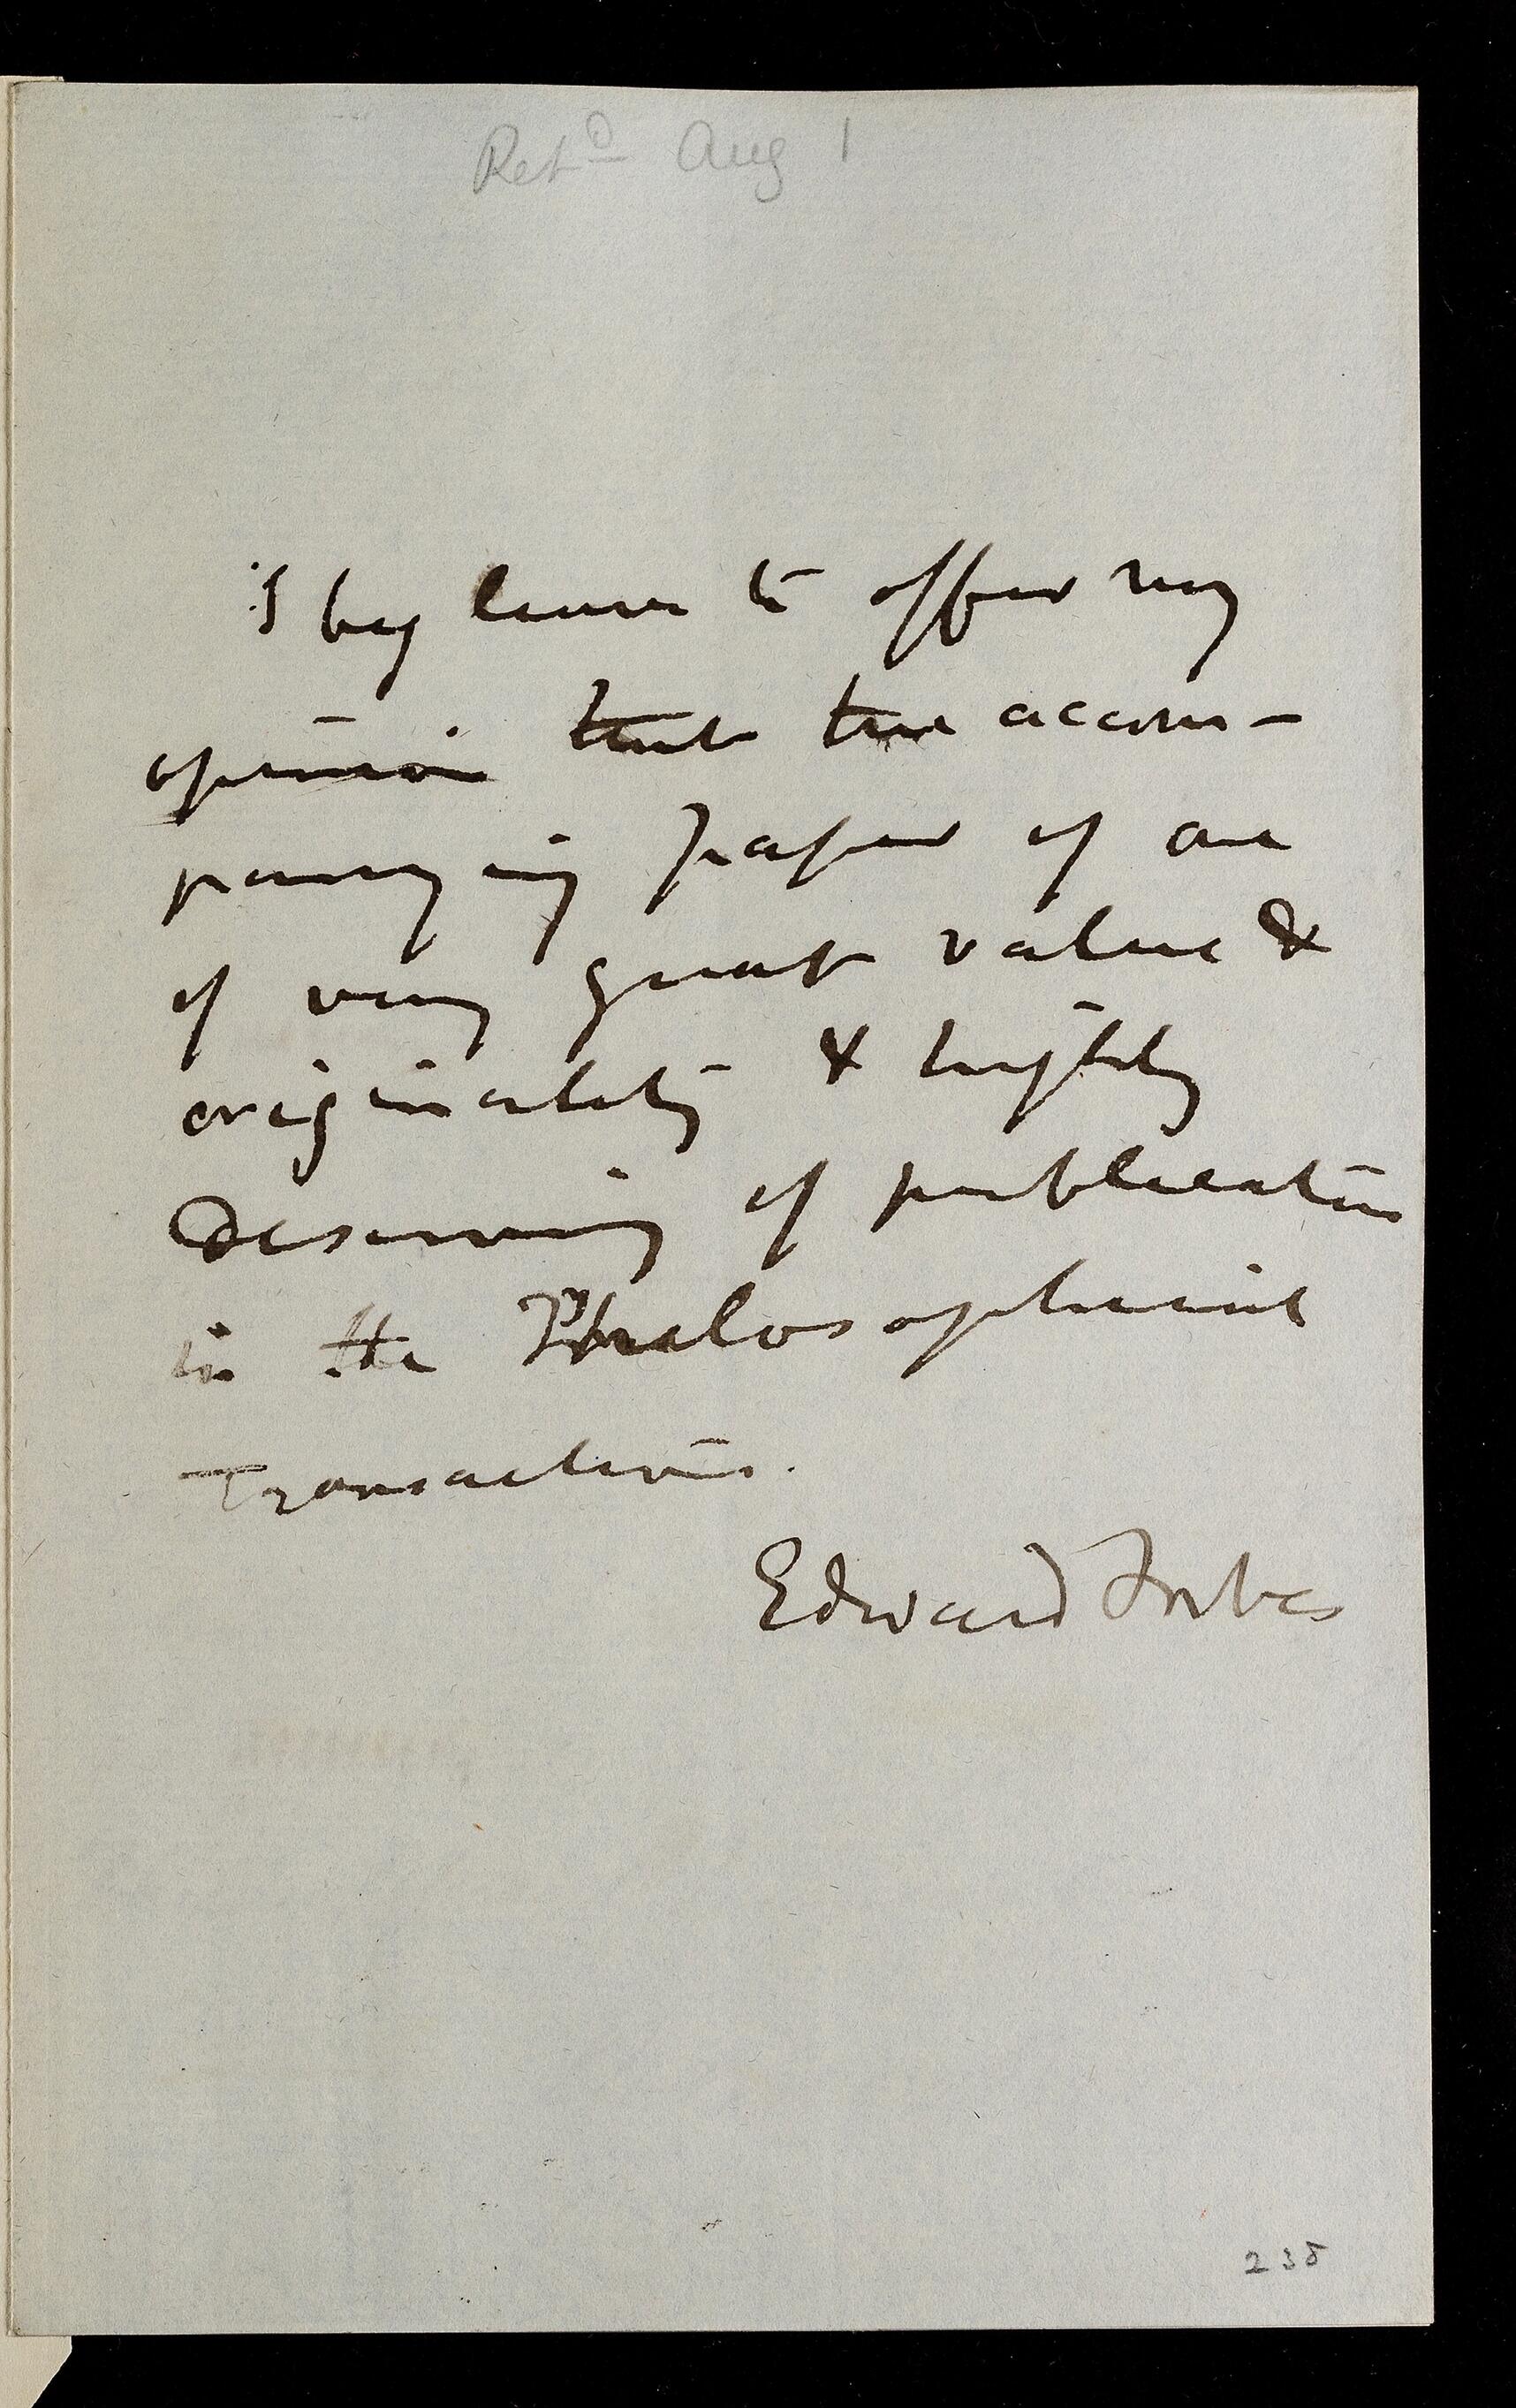 Retd Aug 1
I beg leave to offer my
opinion that the accom-
panying paper of
of very great value &
originality & highly
deserving of publication
in the Philosophical
Transactions.
Edward Forbes
238